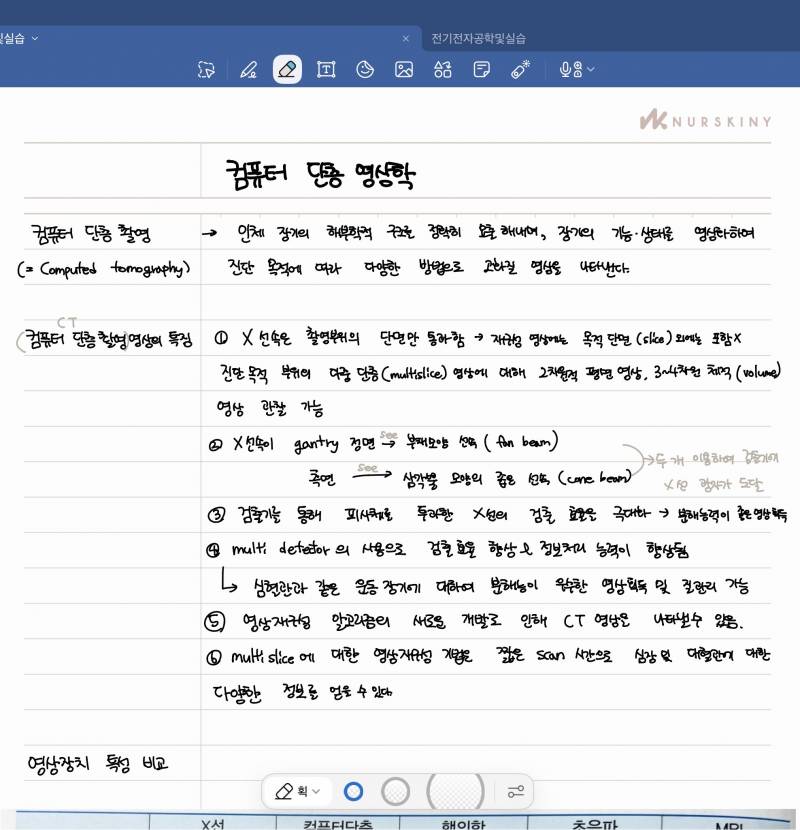 및실습
전기전자공학및실습
NURSKINY
컴퓨터 단층 영상학
컴퓨터 단층 촬영 → 인체 장기의 해부학적 구조를 정확히 묘출해내며, 장기의 기능·상태를 영상화하여
(= Computed tomography) 진단 목적에 따라 다양한 방법으로 고화질 영상을 나타낸다.
CT
(컴퓨터 단층촬영)영상의 특징 ① X선속은 촬영부위의 단면만 통과함 → 재구성 영상에는 목적 단면(slice)외에는 포함X
진단 목적 부위의 다중 단층(multislice) 영상에 대해 2차원적 평면 영상, 3~4차원 체적(volume)
영상 관찰 가능
② X선속이 gantry 정면 see → 부채모양 선속 ( fan beam)
측면 see → 삼각뿔 모양의 좁은 선속 (cone beam) → 두개 이용하여 검출기에
X선 입자가 도달
③ 검출기를 통해 피사체를 투과한 X선의 검출 효율을 극대화 → 분해능력이 좋은영상획득
④ multi detector의 사용으로 검출효율 향상 & 정보처리 능력이 향상됨
↳ 심혈관과 같은 운동장기에 대하여 분해능이 우수한 영상획득 및 질관리 가능
⑤ 영상재구성 알고리즘의 새로운 개발로 인해 CT 영상은 나타낼수 있음.
⑥ multi slice에 대한 영상재구성 기법은 짧은 scan 시간으로 심장 및 대혈관에 대한
다양한 정보를 얻을 수 있다
영상장치 특성 비교
획
X선 컴퓨터단층 핵의학 초음파 MRI